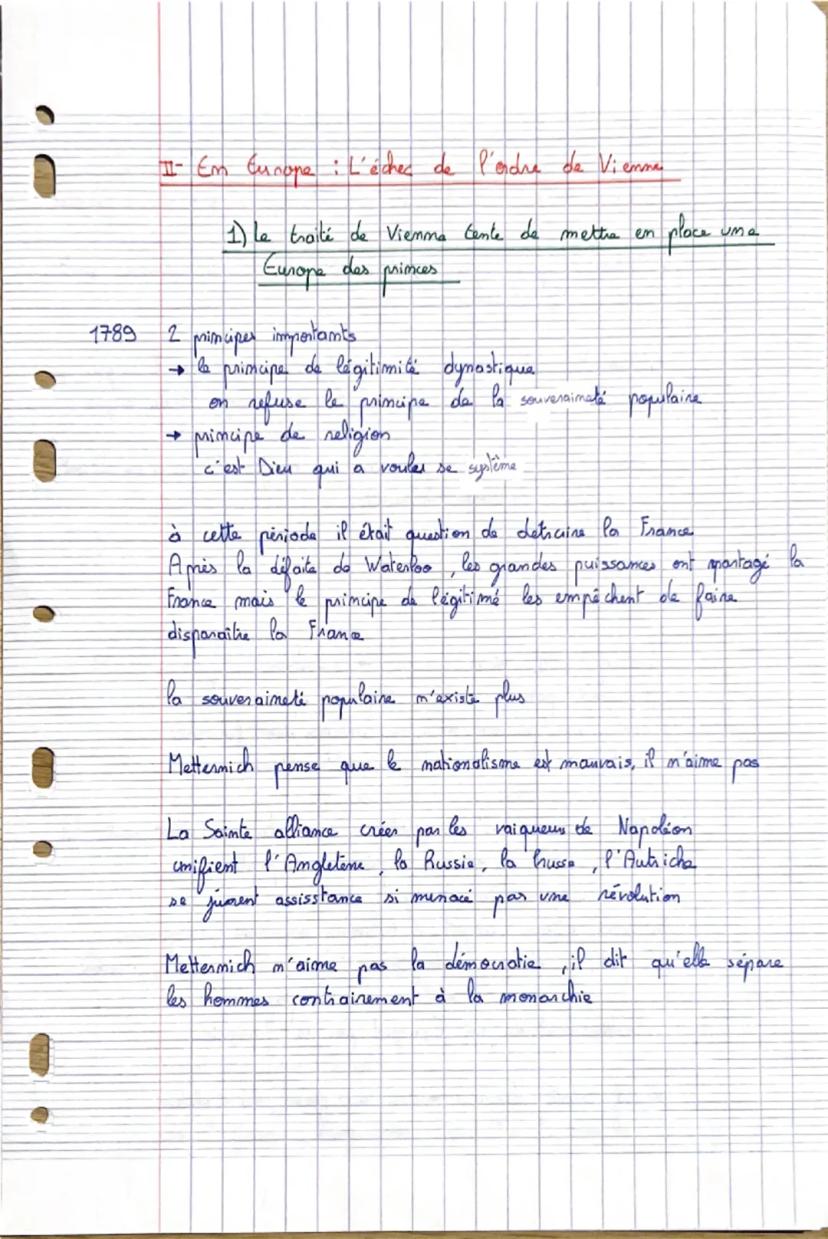 II- En Europe : L'échec de l'ordre de Vienne
1) Le traité de Vienne tente de mettre en place une
Europe des princes
1789 2 principes importants
→ le principe de légitimité dynastique
on refuse le principe de la souveraineté populaire
→ principe de religion
c'est Dieu qui a voulu se système
à cette période il était question de detruire la France
Après la défaite de Waterloo, les grandes puissances ont partagé la
France mais le principe de légitimé les empêchent de faire
disparaître la France
la souveraineté populaire n'existe plus
Metternich pense que le nationalisme est mauvais, il n'aime pas
La Sainte alliance créer par les vaiqueurs de Napoléon
unifient l'Angleterre, la Russie, la Prusse, l'Autriche
se jurent assisstance si menacé par une révolution
Metternich n'aime pas la démocratie, il dit qu'elle sépare
les hommes contrairement à la monarchie